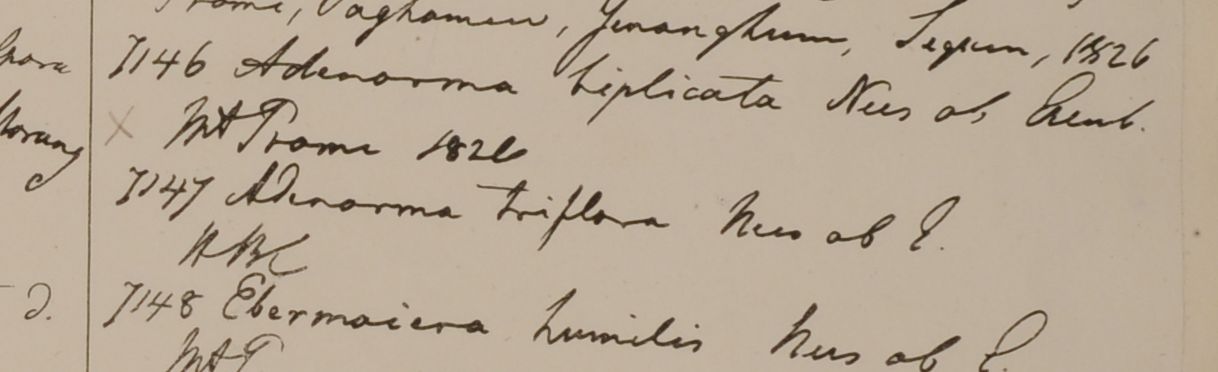 Prome, Paghamew, Yenanghum, Seguen, 1826
7146 Adenosma triplicata Nees ab Esenb.
X Mt Prome 1826
7147 Adenosma triflora Nees ab E.
HBC
7148 Ebermaiera humilis Nees ab E.